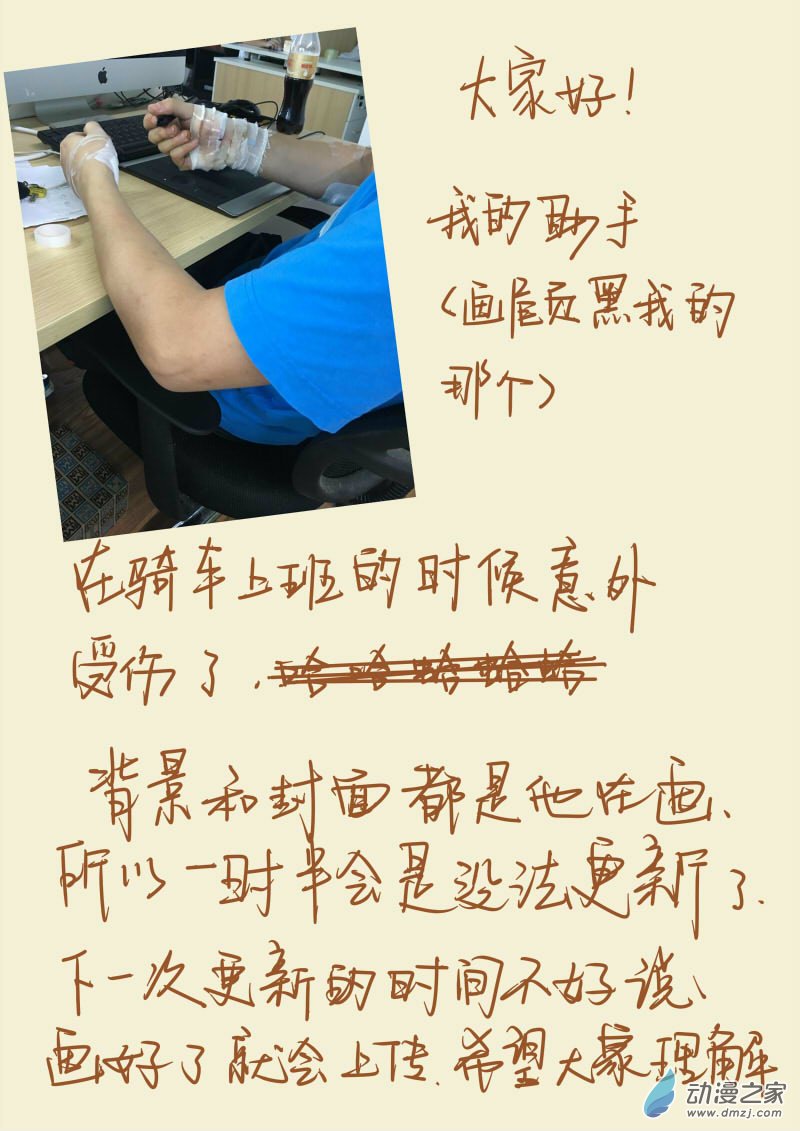 大家好！
我的助手
（画尾页黑我的
那个）
在骑车上班的时候意外
受伤了．哈哈哈哈哈
背景和封面都是他在画、
所以一时半会是没法更新了．
下一次更新的时间不好说、
画好了就会上传．希望大家理解
动漫之家
www.dmzj.com